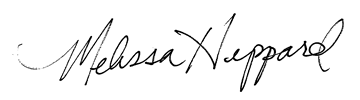 Melissa Heppard